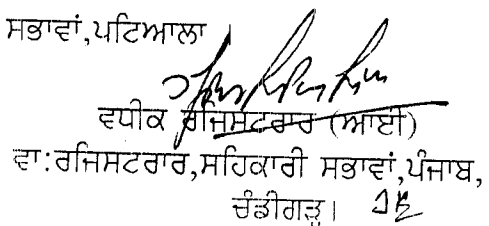 ਸਭਾਵਾਂ,ਪਟਿਆਲਾ
ਵਧੀਕ ਰਜਿਸਟਰਾਰ (ਆਈ)
ਵਾ:ਰਜਿਸਟਰਾਰ,ਸਹਿਕਾਰੀ ਸਭਾਵਾਂ,ਪੰਜਾਬ,
ਚੰਡੀਗੜ੍ਹ।